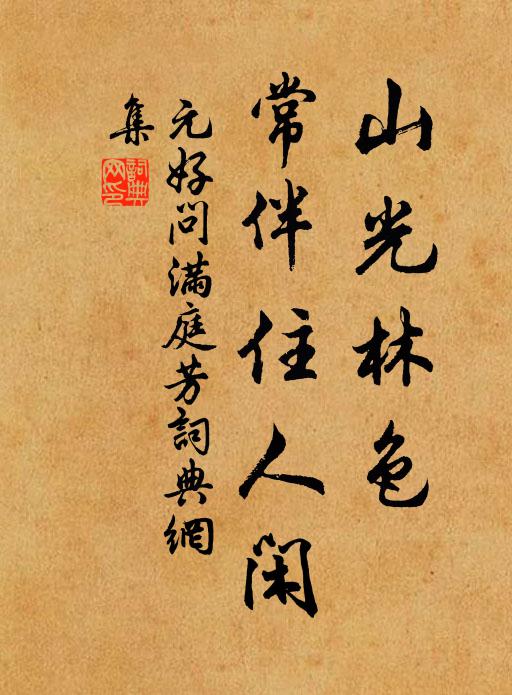 山光林色
常伴住人閑
元好問滿庭芳詞典網
集
詞典網印